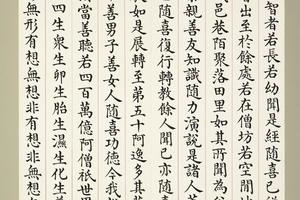 智者若長若幼聞是經隨喜已
會出至於餘處若在僧坊若空閒
邑巷陌聚落田里如其所聞為
親善友知識隨力演說是諸人
隨喜復行轉教餘人聞已亦隨
如是展轉至第五十阿逸多其
善男子善女人隨喜功德今我
當善聽若四百萬億阿僧祇世
四生衆生卵生胎生濕生化生
無形有想無想非有想非無想